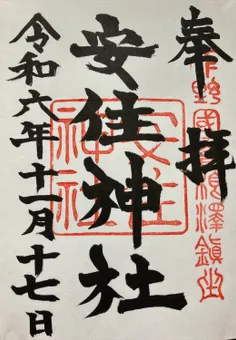 奉拝
下野國高根澤鎮座
安住神社
安住神社
令和六年十一月十七日